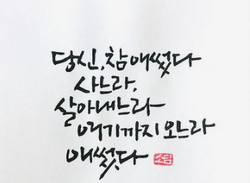 당신, 참 애썼다
사느라,
살아내느라
여기까지 오느라
애썼다